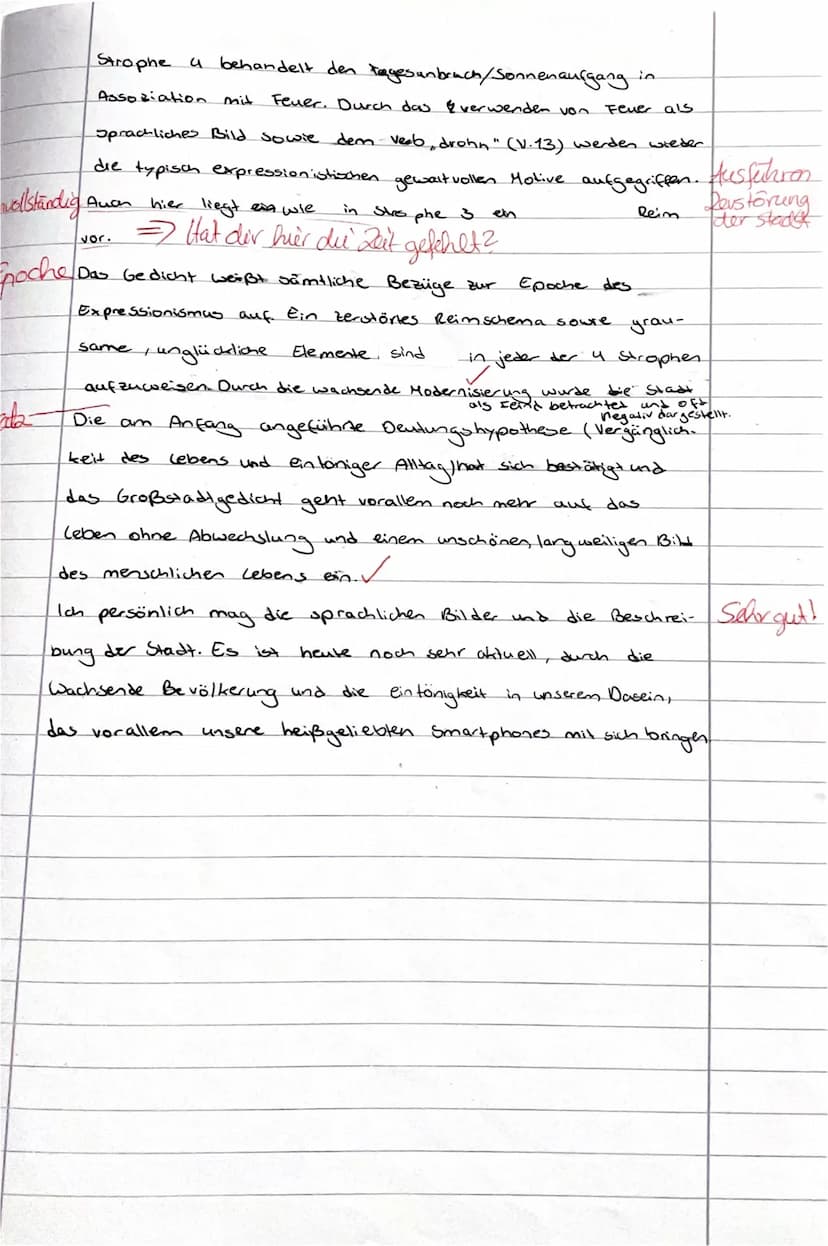 Strophe 4 behandelt den Tagesanbruch/Sonnenaufgang in
Assoziation mit Feuer. Durch das verwenden von Feuer als
sprachliches Bild sowie dem Verb „drohn" (V.13) werden wieder
die typisch expressionistischen gewaltvollen Motive aufgegriffen. Ausführen
Zerstörung
der Stadt
vollständig Auch hier liegt wie in Strophe 3 ein Reim
vor. => Hat dir hier die Zeit gefehlt?
Epoche Das Gedicht weißt sämtliche Bezüge zur Epoche des
Expressionismus auf. Ein zerstörtes Reimschema sowie grau-
same, unglückliche Elemente sind in jeder der 4 Strophen
aufzuweisen. Durch die wachsende Modernisierung wurde die Stadt
als Feind betrachtet und oft
negativ dargestellt.
Die am Anfang angeführte Deutungshypothese (Vergänglich-
keit des Lebens und eintöniger Alltag) hat sich bestätigt und
das Großstadtgedicht geht vorallem noch mehr auf das
Leben ohne Abwechslung und einem unschönen, langweiligen Bild
des menschlichen Lebens ein. ✓
Ich persönlich mag die sprachlichen Bilder und die Beschrei- Sehr gut!
bung der Stadt. Es ist heute noch sehr aktuell, durch die
Wachsende Bevölkerung und die eintönigkeit in unserem Dasein,
das vorallem unsere heißgeliebten Smartphones mit sich bringen